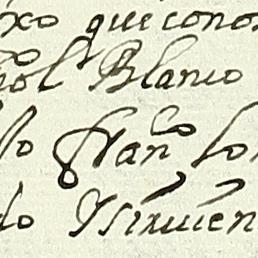 xo que conos
ol Blanco
lo franco lo
do Ysirvien